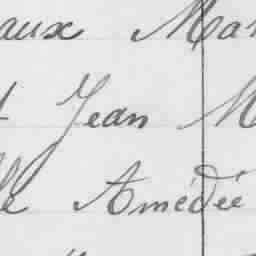 aux Mar
Jean M
le Amédée